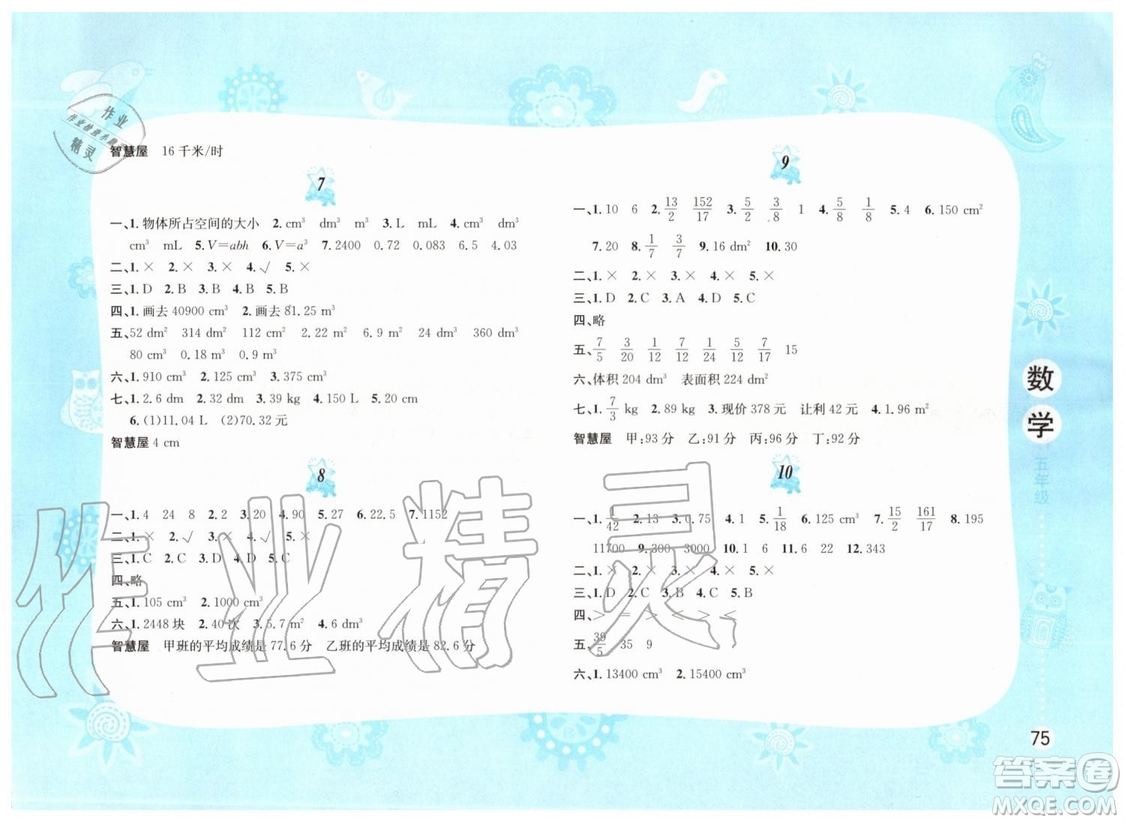 智慧屋 16千米/时
7
一、1.物体所占空间的大小 2.cm³ dm³ m³ 3.L mL 4.cm³ dm³
cm³ mL 5.V=abh 6.V=a³ 7.2400 0.72 0.083 6.5 4.03
二、1.× 2.× 3.× 4.√ 5.×
三、1.D 2.B 3.B 4.C 5.B
四、1.画去 40900 cm³ 2.画去 81.25 m³
五、52 dm² 314 dm² 112 cm² 2.22 m² 6.9 m² 24 dm³ 360 dm³
80 cm³ 0.18 m³ 0.9 m³
六、1.910 cm³ 2.125 cm³ 3.375 cm³
七、1.2.6 dm 2.32 dm 3.39 kg 4.150 L 5.20 cm
6.(1)11.04 L (2)70.32 元
智慧屋 4 cm
8
一、1.4 24 8 2.2 3.20 4.90 5.27 6.22.5 7.1152
二、1.× 2.√ 3.× 4.√ 5.×
三、1.C 2.B 3.C 4.D 5.C
四、略
五、1.105 cm³ 2.1000 cm³
六、1.2448 块 2.40 次 3.5.7 m² 4.5 dm³
智慧屋 甲班的平均成绩是 77.6 分 乙班的平均成绩是 82.6 分
9
一、1.10 6 2.13/2 152/17 3.5/2 3/8 1 4.5/8 1/8 5.4 6.150 cm²
7.20 8.1/7 3/7 9.16 dm² 10.30
二、1.× 2.× 3.× 4.× 5.×
三、1.D 2.C 3.A 4.D 5.B
四、略
五、7/5 3/20 2/5 1/24 5/12 7/16 15
六、体积 204 dm³ 表面积 224 dm²
七、1.7/3 kg 2.89 kg 3.现价 378 元 让利 42 元 4.1.96 m²
智慧屋 甲:93分 乙:91分 丙:96分 丁:92分
10
一、1./42 2.13 3.0.75 4.1 5.1/18 6.125 cm³ 7.15/2 161/17 8.195
11700 9.300 3000 10.1 6 11.6 22 12.343
二、1.× 2.× 3.× 4.× 5.×
三、1.D 2.C 3.B 4.D 5.B
四、> = < > <
五、39/5 35 9
六、1.13400 cm³ 2.15400 cm³
数学
五年级
75
作业
精灵
作业精灵
答案卷
MXQE.COM